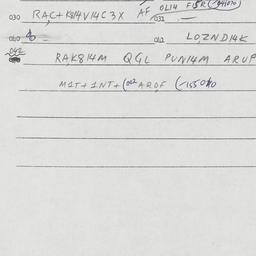 030 RA,C+K814V14C3X AF OL14 FISR
031 —
040
041 LO,ZND14K
042
RAK814M QGL PUN14M ARUP
M1T+1NT+(002 AROF (-155010